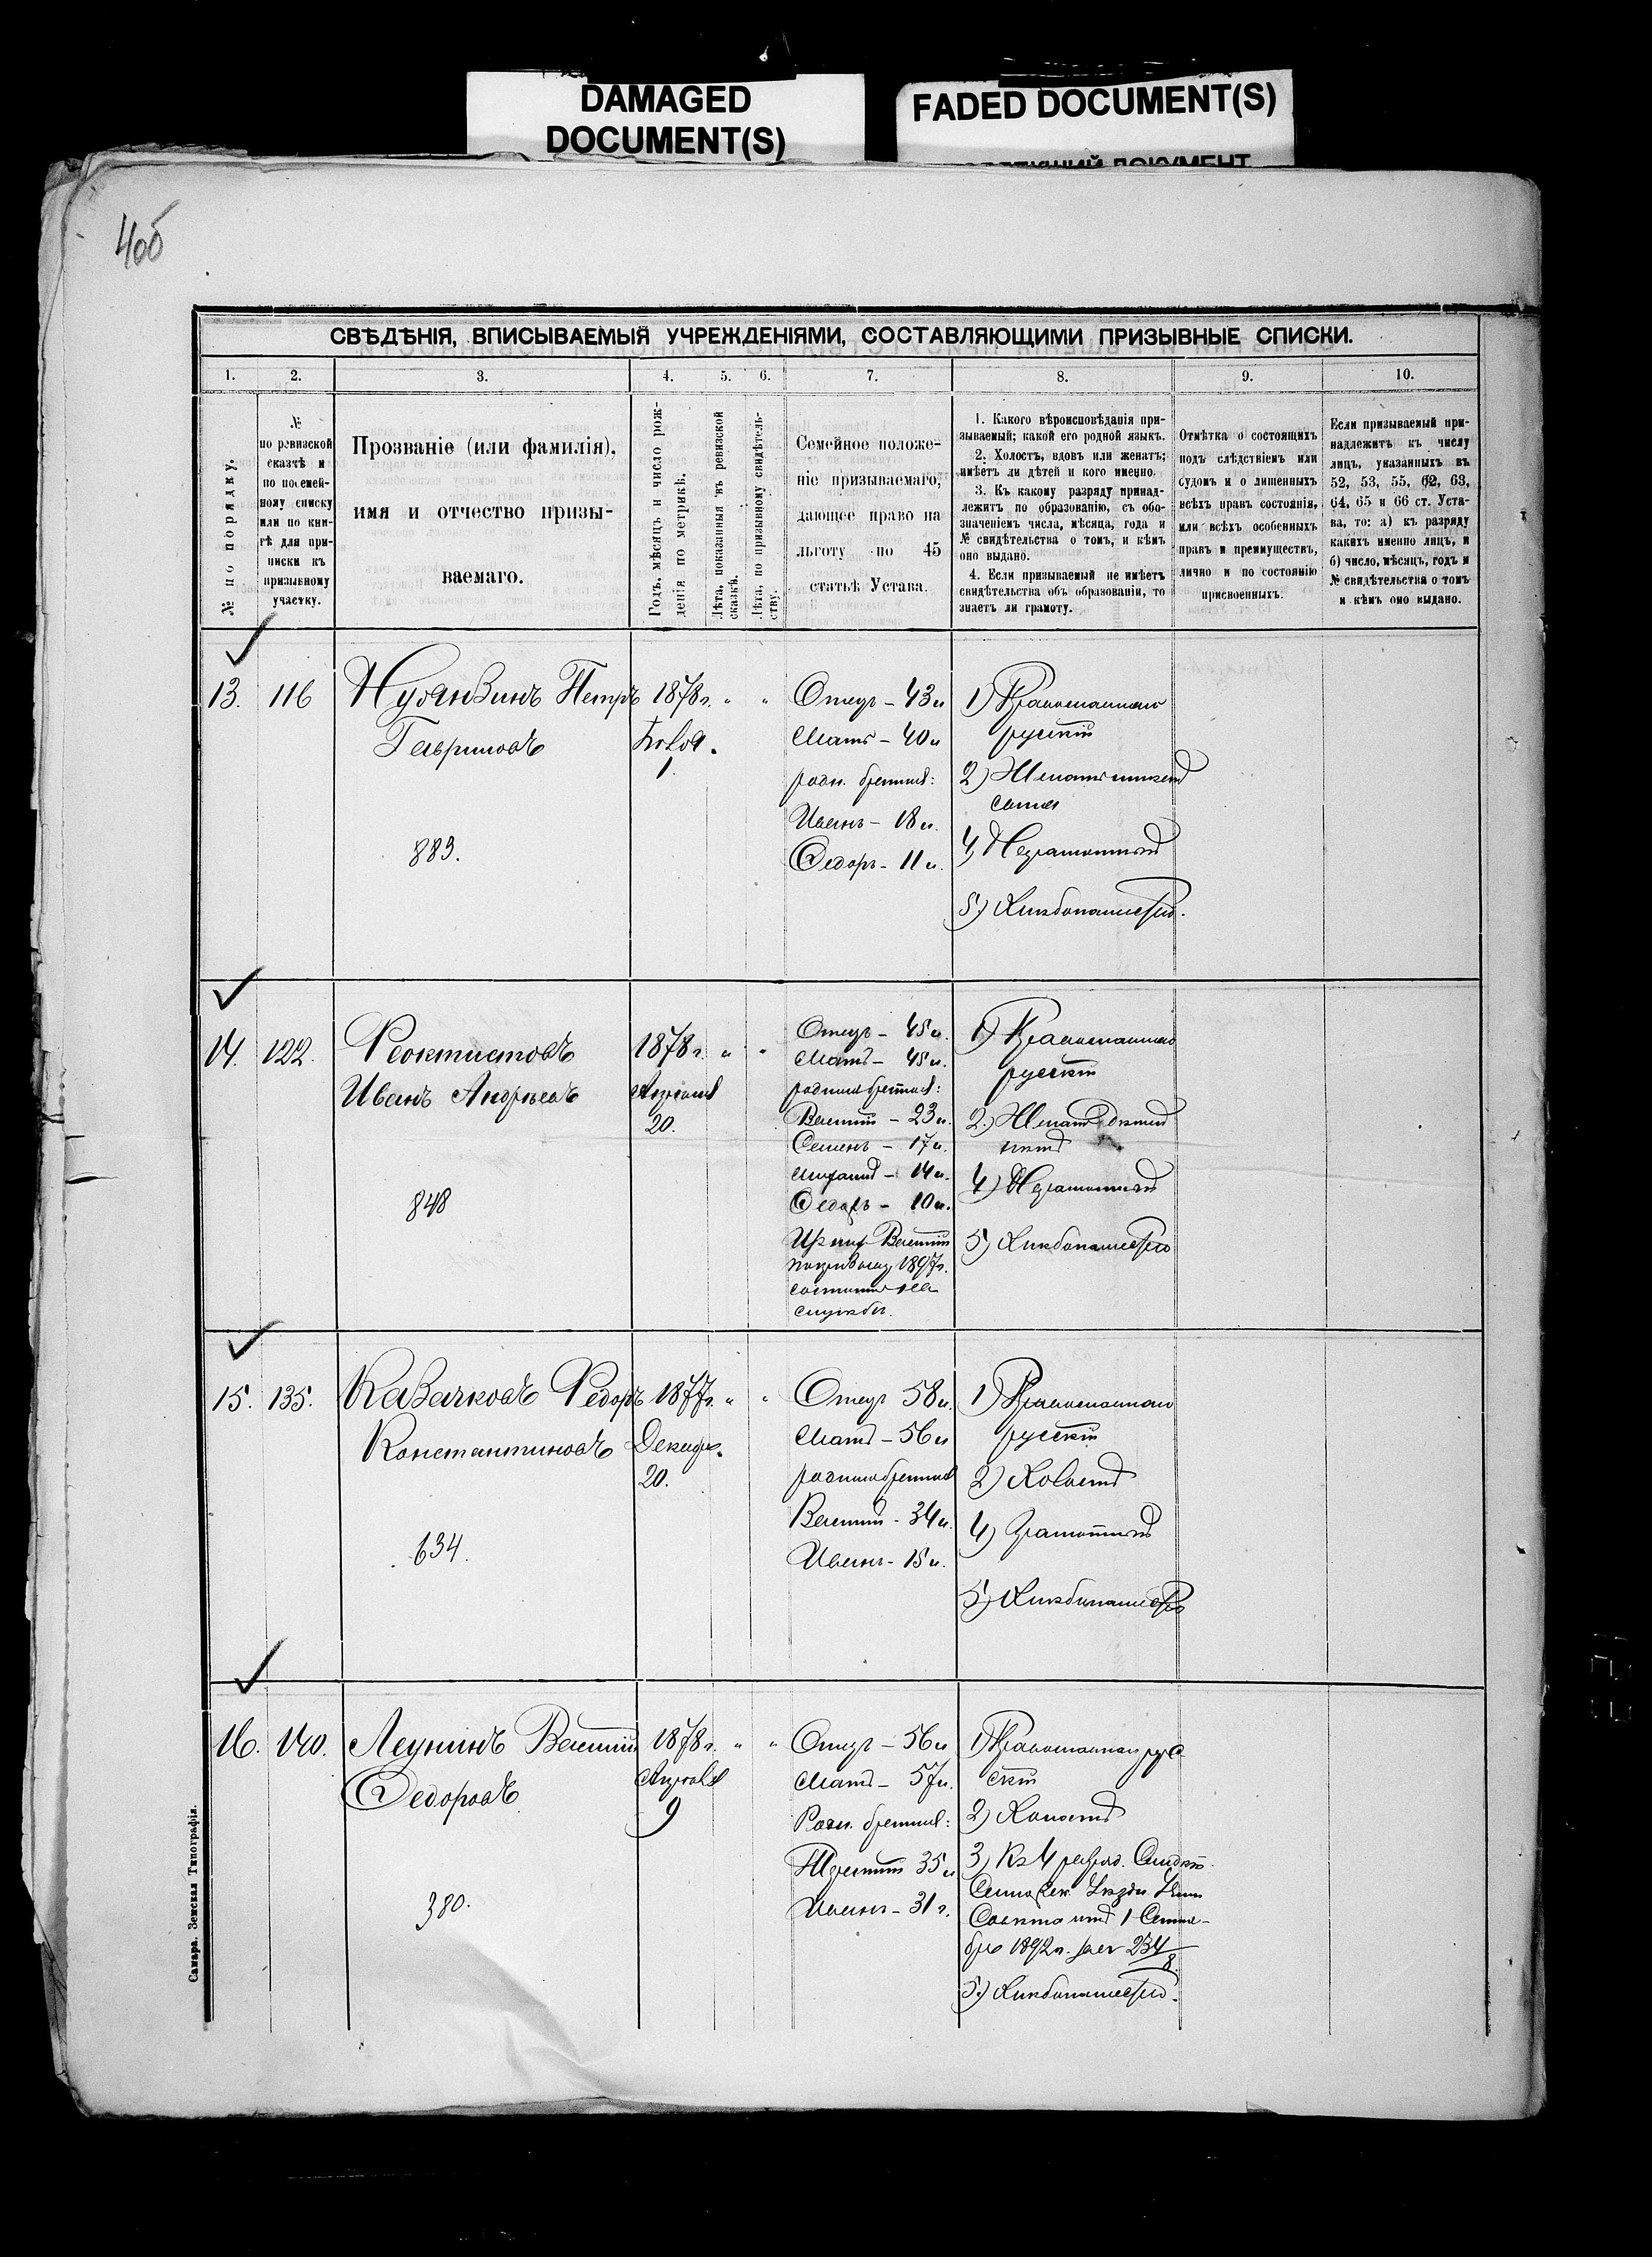 DAMAGED
DOCUMENT(S)
FADED DOCUMENT(S)
ДОКУМЕНТ
СВѢДѢНІЯ, ВПИСЫВАЕМЫЯ УЧРЕЖДЕНІЯМИ, СОСТАВЛЯЮЩИМИ ПРИЗЫВНЫЕ СПИСКИ.
1. 2. 3. 4. 5. 6. 7. 8. 9. 10.
№ по порядку.
№
по ревизской
сказкѣ и
по посемей-
ному списку
или по кни-
гѣ для при-
писки къ
призывному
участку.
Прозваніе (или фамилія),
имя и отчество призы-
ваемаго.
Годъ, мѣсяцъ и число рож-
денія по метрикѣ.
Лѣта, показанныя въ ревизской
сказкѣ.
Лѣта, по призывному свидѣтель-
ству.
Семейное положе-
ніе призываемаго,
дающее право на
льготу по 45
статьѣ Устава.
1. Какого вѣроисповѣданія при-
зываемый; какой его родной языкъ.
2. Холостъ, вдовъ или женатъ;
имѣетъ ли дѣтей и кого именно.
3. Къ какому разряду принад-
лежитъ по образованію, съ обо-
значеніемъ числа, мѣсяца, года и
№ свидѣтельства о томъ, и кѣмъ
оно выдано.
4. Если призываемый не имѣетъ
свидѣтельства объ образованіи, то
знаетъ ли грамоту.
Отмѣтка о состоящихъ
подъ слѣдствіемъ или
судомъ и о лишенныхъ
всѣхъ правъ состоянія,
или всѣхъ особенныхъ
правъ и преимуществъ,
лично и по состоянію
присвоенныхъ.
Если призываемый при-
надлежитъ къ числу
лицъ, указанныхъ въ
52, 53, 55, 62, 63,
64, 65 и 66 ст. Уста-
ва, то: а) къ разряду
какихъ именно лицъ, и
б) число, мѣсяцъ, годъ и
№ свидѣтельства о томъ
и кѣмъ оно выдано.
13. 116 Петръ 1878 г. " "
Гавриловъ
1.
883.
Отецъ – 43 л
Мать – 40 л
родн. братья:
Иванъ – 18 л.
Ѳедоръ – 11 л.
1) Православнаго
русскій
2)
4) Неграмотный
5) Хлѣбопашество.
14. 122. Феоктистовъ 1878 г. " "
Иванъ Андреевъ
20.
848
Отецъ – 45 л.
Мать – 45 л.
родные братья:
Василій – 23 л.
Семенъ – 17 л.
14 л.
Ѳедоръ – 10 л.
Изъ нихъ Василій
1897 г.
службѣ.
1) Православнаго
русскій
2) Женатъ дѣтей
нѣтъ
4) Неграмотный
5) Хлѣбопашество
15. 135. Казачковъ Федоръ 1877 г. " "
Константиновъ Декабр.
20.
634.
Отецъ 58 л.
Мать – 56 л
родные братья
Василій – 34 л.
Иванъ – 15 л.
1) Православнаго
русскій
2) Холостъ
4) Грамотный
5) Хлѣбопашество
16. 140. Леунинъ Василій 1878 г. " "
Ѳедоровъ Апрѣля
9
380.
Отецъ – 56 л
Мать – 57 л.
Родн. братья:
35 л
Иванъ – 31 г.
1) Православнаго рус
скій
2) Холостъ
3) Къ 4 разряд. Свидѣт.
Совѣта отъ 1 Сентя-
бря 1892 г. за № 234/8
5) Хлѣбопашество.
Самара. Земская Типографія.